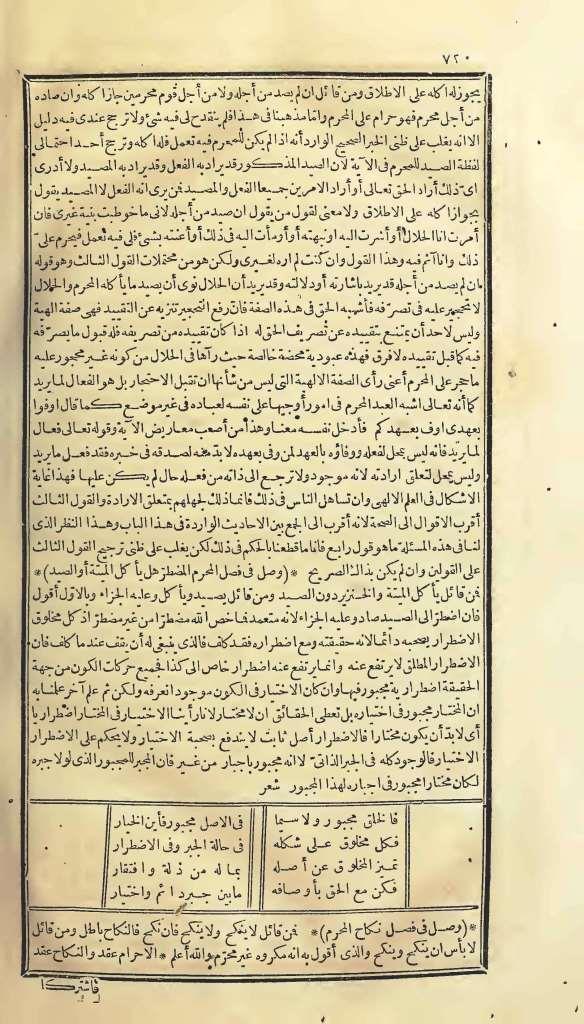 ٧٢٠
يجوز له أكله على الاطلاق ومن قائل ان لم يصد من أجله ولا من أجل قوم محرمين جاز أكله وان صاده
من أجل محرم فهو حرام على المحرم وأما مذهبنا فى هذا فلم ينقدح لى فيه شئ ولا ترجح عندى فيه دليل
الا انه يغلب على ظنى الخبر الصحيح الوارد أنه اذا لم يكن للمحرم فيه تعمل فله أكله وترجح أحد احتمالى
لفظة الصيد للمحرم فى الآية لان الصيد المذكور قد يراد به الفعل وقد يراد به المصيد ولا أدرى
اى ذلك أراد الحق تعالى أو أراد الامرين جميعا الفعل والمصيد فمن يرى انه الفعل لا المصيد يقول
بجواز أكله على الاطلاق ولا معنى لقول من يقول ان صيد من أجله لانى ما خوطبت بنية غيرى فان
أمرت انا الحلال أو أشرت اليه او نبهته أو أومأت اليه فى ذلك أو أعنته بشئ فلى فيه تعمل فيحرم على
ذلك وانا آثم فيه وهذا القول وان كنت لم اره لغيرى ولكن هو من محتملات القول الثالث وهو قوله
ان لم يصد من أجله قد يريد باشارته أو دلالته وقد يريد أن الحلال نوى أن يصيد ما يأكله المحرم والحلال
لا تحجير عليه فى تصرفه فأشبه الحق فى هذه الصفة فان رفع التحجير تنزيه عن التقييد فهى صفة الهية
وليس لاحد أن يمتنع بتقييده عن تصريف الحق له اذا كان تقييده من تصريفه فله قبول ما يصرفه
فيه كما قبل تقييده لا فرق فهذه عبودية محضة خالصة حيث رآها فى الحلال من كونه غير محجور عليه
ما حجر على المحرم أعنى رأى الصفة الالهية التى ليس من شأنها ان تقبل الاحتجار بل هو الفعال لما يريد
كما أنه تعالى اشبه العبد المحرم فى امور أوجبها على نفسه لعباده فى غير موضع كما قال اوفوا
بعهدى اوف بعهدكم فأدخل نفسه معنا وهذا من أصعب معارض الآية وقوله تعالى فعال
لما يريد فانه ليس بمحل لفعله ووفاؤه بالعهد لمن وفى بعهده لا بد منه لصدقه فى خبره فقد فعل ما يريد
وليس بمحل لتعلق ارادته لانه موجود ولا ترجع الى ذاته من فعله حال لم يكن عليها فهذا غاية
الاشكال فى العلم الالهى وان تساهل الناس فى ذلك فانما ذلك لجهلهم بمتعلق الارادة والقول الثالث
أقرب الاقوال الى الصحة لانه أقرب الى الجمع بين الاحاديث الواردة فى هذا الباب وهذا النظر الذى
لنا فى هذه المسئلة ما هو قول رابع فانا ما قطعنا بالحكم فى ذلك لكن يغلب على ظنى ترجيح القول الثالث
على القولين وان لم يكن بذلك الصريح *(وصل فى فصل المحرم المضطر هل يأكل الميتة أو الصيد)*
فمن قائل يأكل الميتة والخنزير دون الصيد ومن قائل يصيد ويأكل وعليه الجزاء وبالاول أقول
فان اضطر الى الصيد صاد وعليه الجزاء لانه متعمد فما خص الله مضطرا من غير مضطر اذ كل مخلوق
الاضطرار يصحبه دائما لانه حقيقته ومع اضطراره فقد كلف فالذى ينبغى له أن يقف عند ما كلف فان
الاضطرار المطلق لا يرتفع عنه وانما يرتفع عنه اضطرار خاص الى كذا فجميع حركات الكون من جهة
الحقيقة اضطرارية مجبور فيها وان كان الاختيار فى الكون موجودا نعرفه ولكن ثم علم آخر علمنا به
ان المختار مجبور فى اختياره بل تعطى الحقائق ان لا مختار لانا رأينا الاختيار فى المختار اضطراريا
أى لا بد أن يكون مختارا فالاضطرار أصل ثابت لا يندفع بصحبة الاختيار ولا يحكم على الاضطرار
الاختيار فالوجود كله فى الجبر الذاتى لا انه مجبور باجبار من غير فان المجبر للمجبور الذى لولا جبره
لكان مختارا مجبور فى اجباره لهذا المجبور شعر
فالخلق مجبور ولا سيما فى الاصل مجبور فأين الخيار
فكل مخلوق على شكله فى حالة الجبر وفى الاضطرار
تميز المخلوق عن أصله بما له من ذلة وافتقار
فكن مع الحق بأوصافه ما بين جبر دائم واختيار
*(وصل فى فصل نكاح المحرم)* فمن قائل لا ينكح ولا ينكح فان نكح فالنكاح باطل ومن قائل
لا بأس ان ينكح وينكح والذى أقول به انه مكروه غير محرم والله أعلم * الاحرام عقد والنكاح عقد
فاشتركا